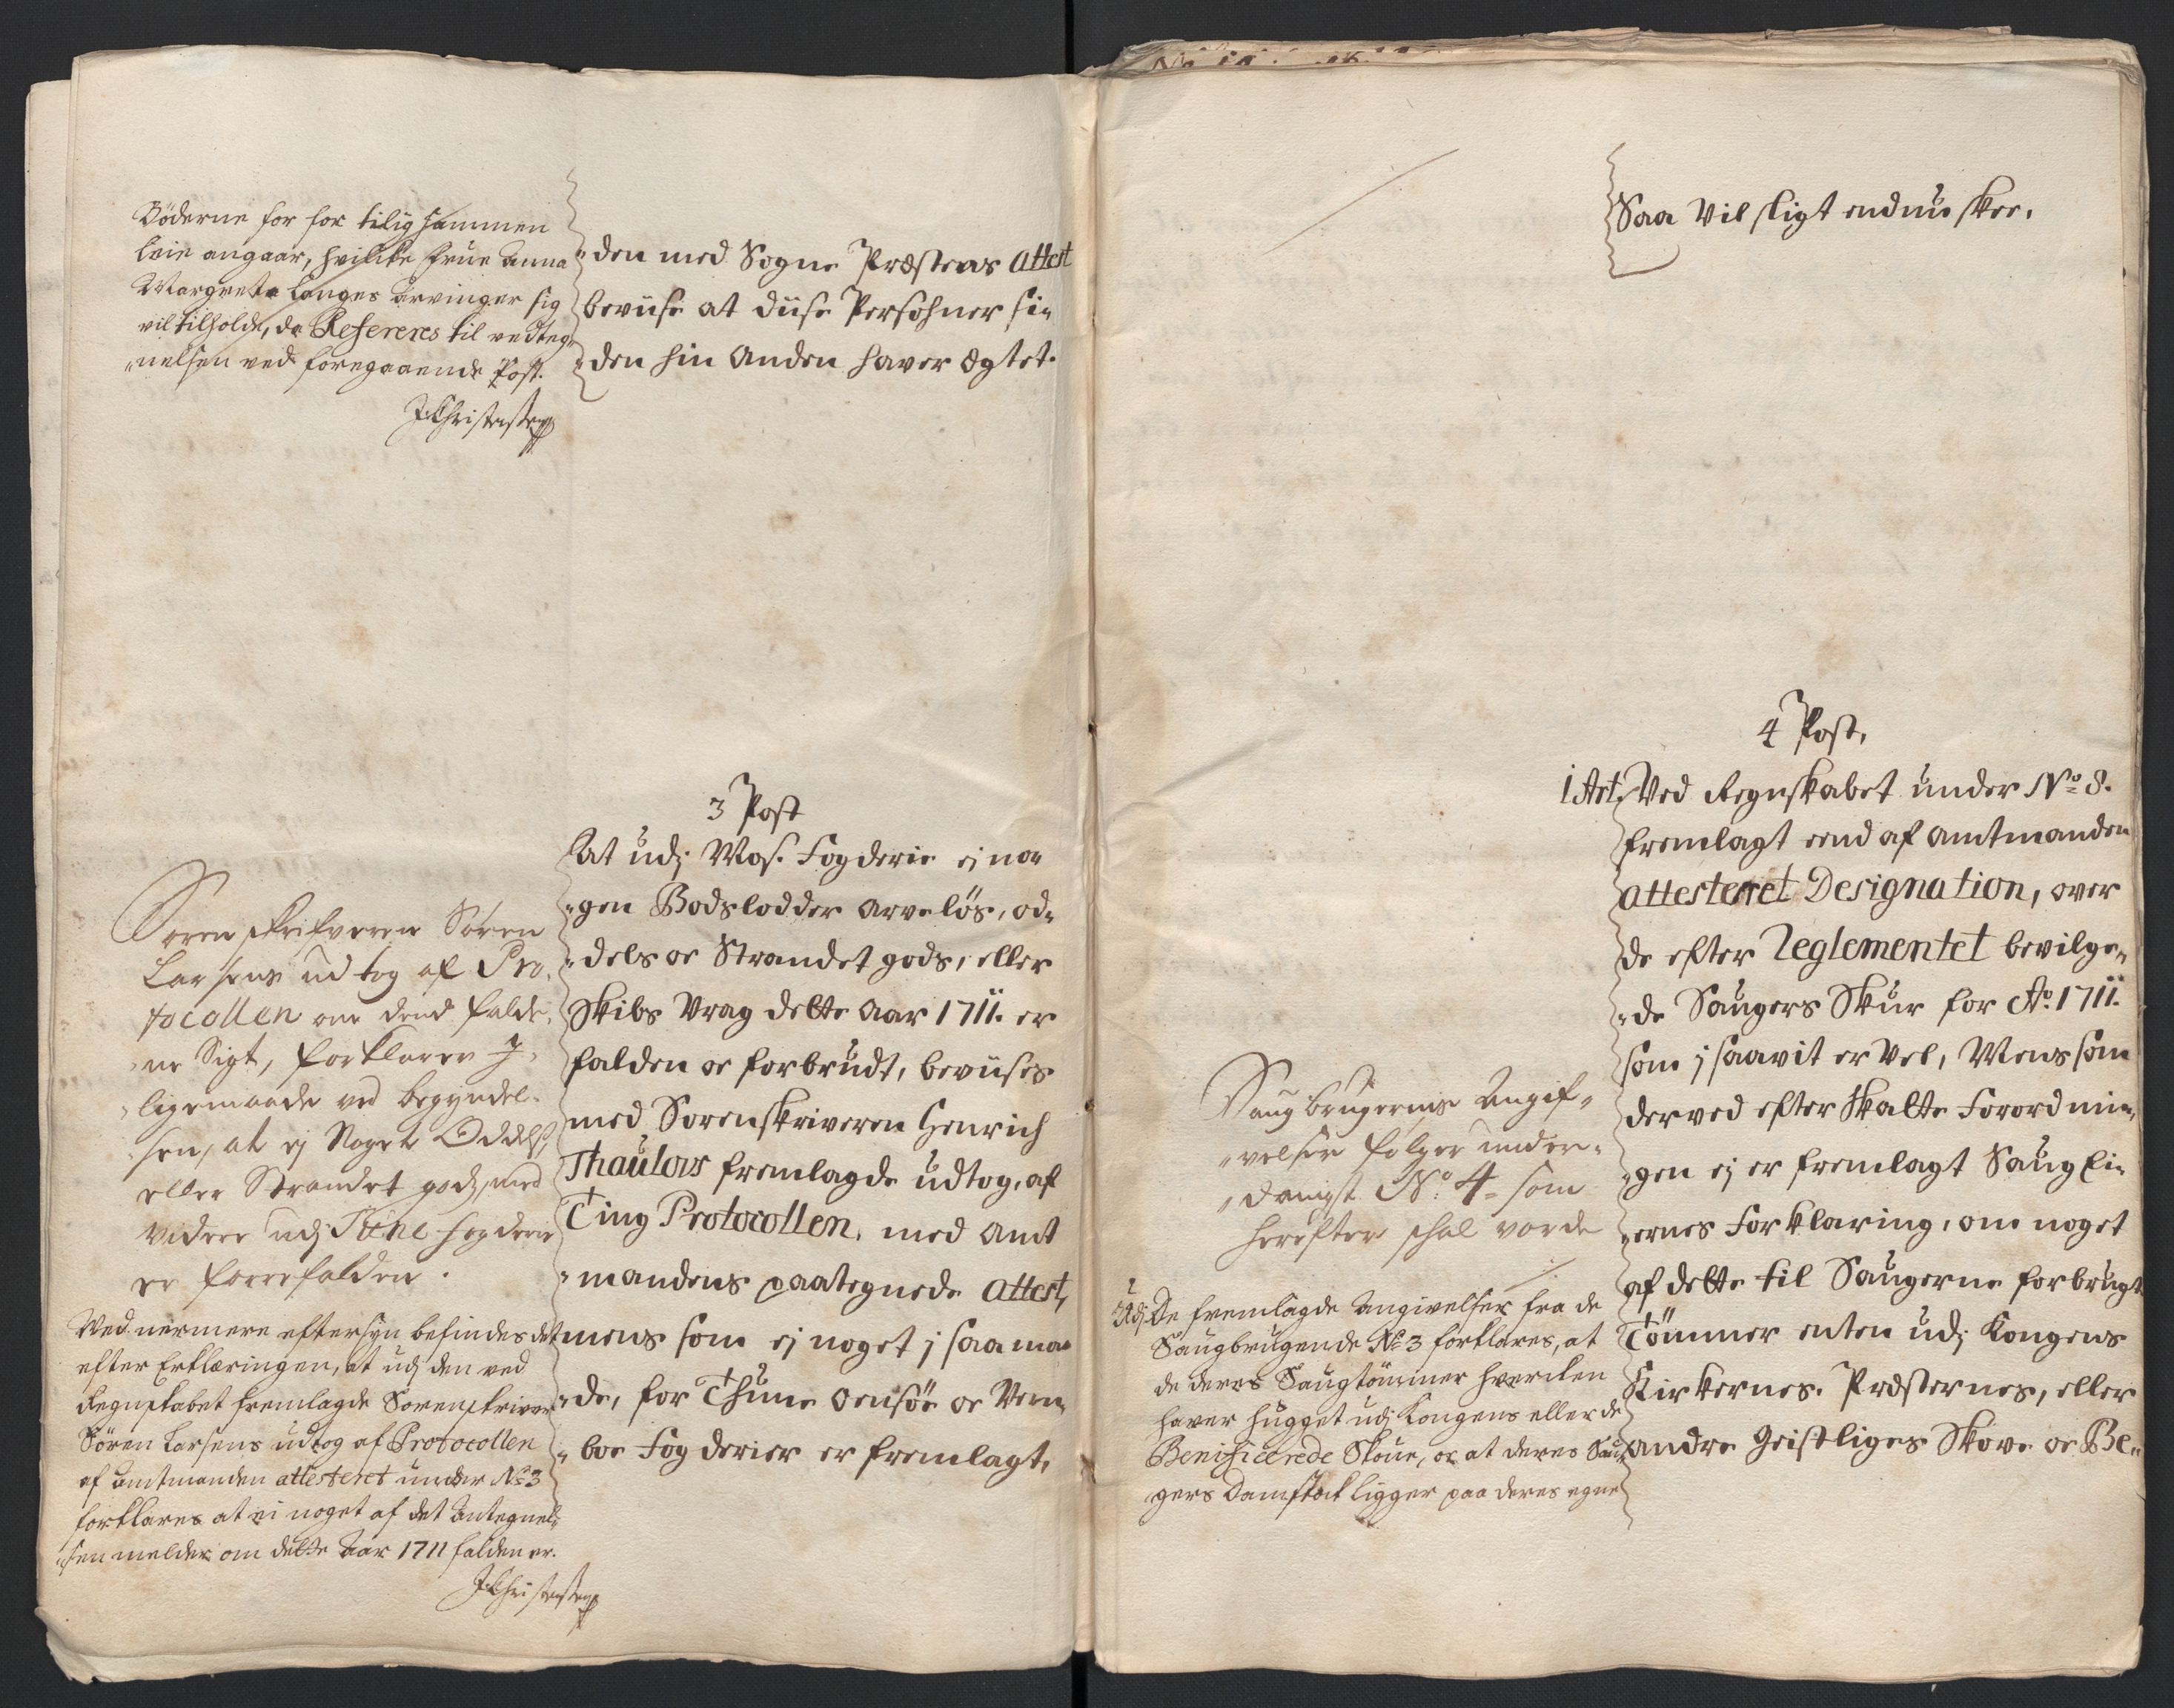 Böderne for for tilig sammen
leie angaar, hvilcke Frue Anna
Margrete Langes Arvinger sig
vil tilholde, da Refereres til vedteg-
nelsen ved foregaaende Post.
J Christensen
den med Sogne Præstens Attest
beviise at diise Persohner si-
den hin anden haver ægtet.
3 Post
At udj Mos. Fogderie ej no-
gen Bodslodder arveløs, od-
dels oc Strandet gods, eller
Skibs Vrag dette Aar 1711. er
falden oc forbrudt, beviises
med Sorenskriveren Henrich
Thaulovs fremlagde udtog, af
Ting Protocollen, med Amt
mandens paategnede Attest,
mens som ej noget j saa ma-
de, for Thune Oensöe oc Vem-
boe Fogderier er fremlagt,
Sorenskrifveren Sören
Larsens udtog af Pro-
tocollen om dend falde-
ne Sigt, forklarer J-
ligemaade ved begyndel-
sen, at ej Noget Oddelß
eller Strandet godß, med
videre udj Tune fogderie
er forrefalden.
Ved nermere eftersyn befindes det
efter Erklæringen, at udj den ved
Regnskabet fremlagde Sorenskriver
Sören Larsens udtog af Protocollen
af Amtmanden attesteret under No 3
forklares at ei noget af det Antegnel-
sen melder om dette Aar 1711 falden er.
J Christensen
Saa Vil sligt endnu skee.
4 Post,
1 Art. Ved Regnskabet under No 8.
fremlagt eend af Amtmanden
attesteret Designation, over
de efter Reglementet bevilge-
de Saugers Skur for Ao. 1711.
som j saavit er Vel, Mens som
derved efter Skatte Forordnin-
gen ej er fremlagt Saug Ei-
ernes Forklaring, om noget
af dette til Saugerne forbrugt
Tömmer enten udj Kongens
Kirkernes. Præsternes, eller
andre Geistliges Skove oc Be-
Saugbrugernis Angif-
velser følger under-
danigst No: 4. som
herefter schal vorde
Udj De fremlagde Angivelser fra de
Saugbrugende No 3 forklares, at
de deres Saugtömmer hvercken
haver hugget udj Kongens eller de
Beneficerede Skoue, oc at deres Sau-
gers Damstock ligger paa deres egne